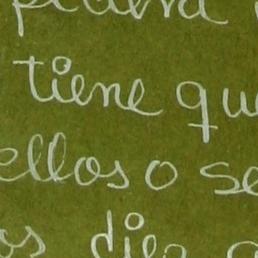 tiene qu
ellos o se
os die